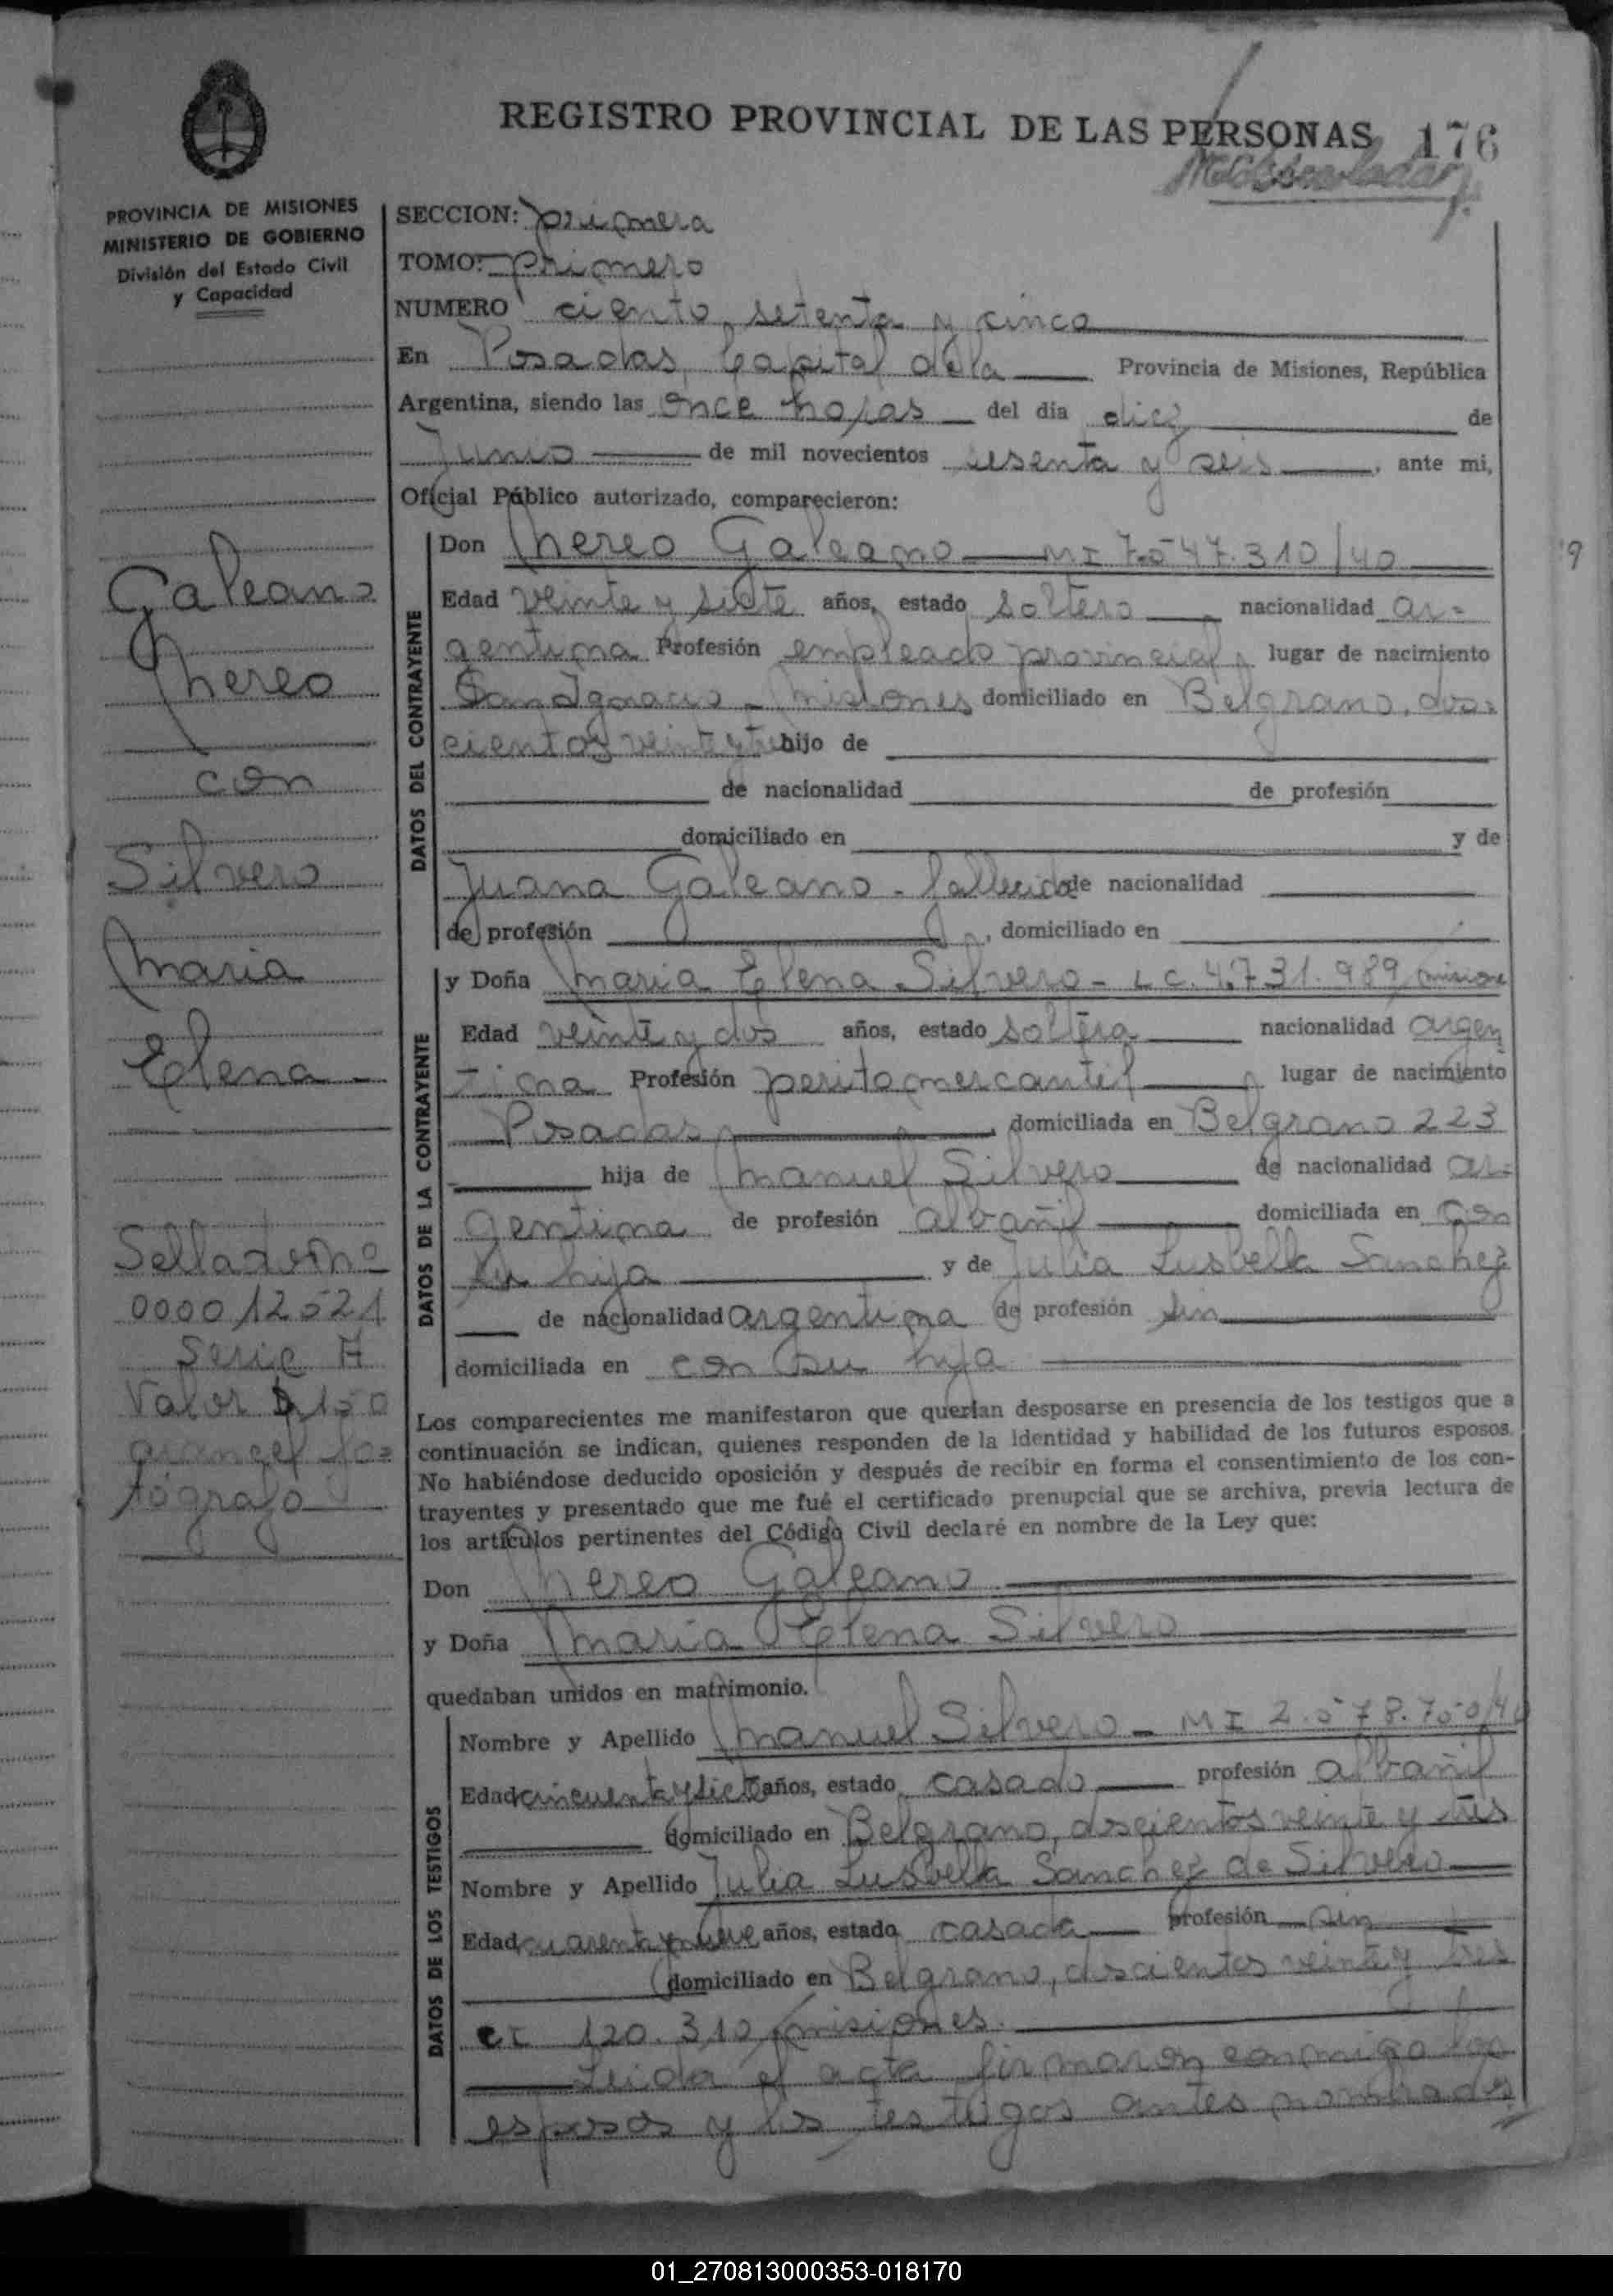 REGISTRO PROVINCIAL DE LAS PERSONAS 176
PROVINCIA DE MISIONES
MINISTERIO DE GOBIERNO
División del Estado Civil
y Capacidad
SECCION: primera
TOMO: primero
NUMERO ciento setenta y cinco
En Posadas, Capital de la Provincia de Misiones, República
Argentina, siendo las once horas del día diez de
Junio de mil novecientos sesenta y seis, ante mi,
Oficial Público autorizado, comparecieron:
Galeano
Nereo
con
Silvero
Maria
Elena
Sellado Nº
000012521
Serie A
Valor $ 150
arancel fo=
tógrafo
DATOS DEL CONTRAYENTE
Don Nereo Galeano MI 7.547.310/40
Edad veinte y siete años, estado soltero nacionalidad ar=
gentina Profesión empleado provincial, lugar de nacimiento
San Ignacio - Misiones domiciliado en Belgrano, dos=
cientos veinte y tres hijo de
de nacionalidad de profesión
domiciliado en y de
Juana Galeano - fallecida de nacionalidad
de profesión , domiciliado en
DATOS DE LA CONTRAYENTE
y Doña Maria Elena Silvero - LC. 4.731.989 Misiones
Edad veinte y dos años, estado soltera nacionalidad argen
tina Profesión perito mercantil, lugar de nacimiento
Posadas, domiciliada en Belgrano 223
hija de Manuel Silvero de nacionalidad ar=
gentina de profesión albañil domiciliada en con
su hija y de Julia Lusbella Sanchez
de nacionalidad argentina de profesión sin
domiciliada en con su hija
Los comparecientes me manifestaron que querían desposarse en presencia de los testigos que a
continuación se indican, quienes responden de la identidad y habilidad de los futuros esposos.
No habiéndose deducido oposición y después de recibir en forma el consentimiento de los con-
trayentes y presentado que me fué el certificado prenupcial que se archiva, previa lectura de
los artículos pertinentes del Código Civil declaré en nombre de la Ley que:
Don Nereo Galeano
y Doña Maria Elena Silvero
quedaban unidos en matrimonio.
DATOS DE LOS TESTIGOS
Nombre y Apellido Manuel Silvero - MI 2.578.750/40
Edad cincuenta y siete años, estado casado profesión albañil
domiciliado en Belgrano, doscientos veinte y tres
Nombre y Apellido Julia Lusbella Sanchez de Silvero
Edad cuarenta y nueve años, estado casada profesión sin
domiciliado en Belgrano, doscientos veinte y tres
CI 120.310 Misiones.
Leida el acta firmaron conmigo los
esposos y los testigos antes nombrados
01_270813000353-018170